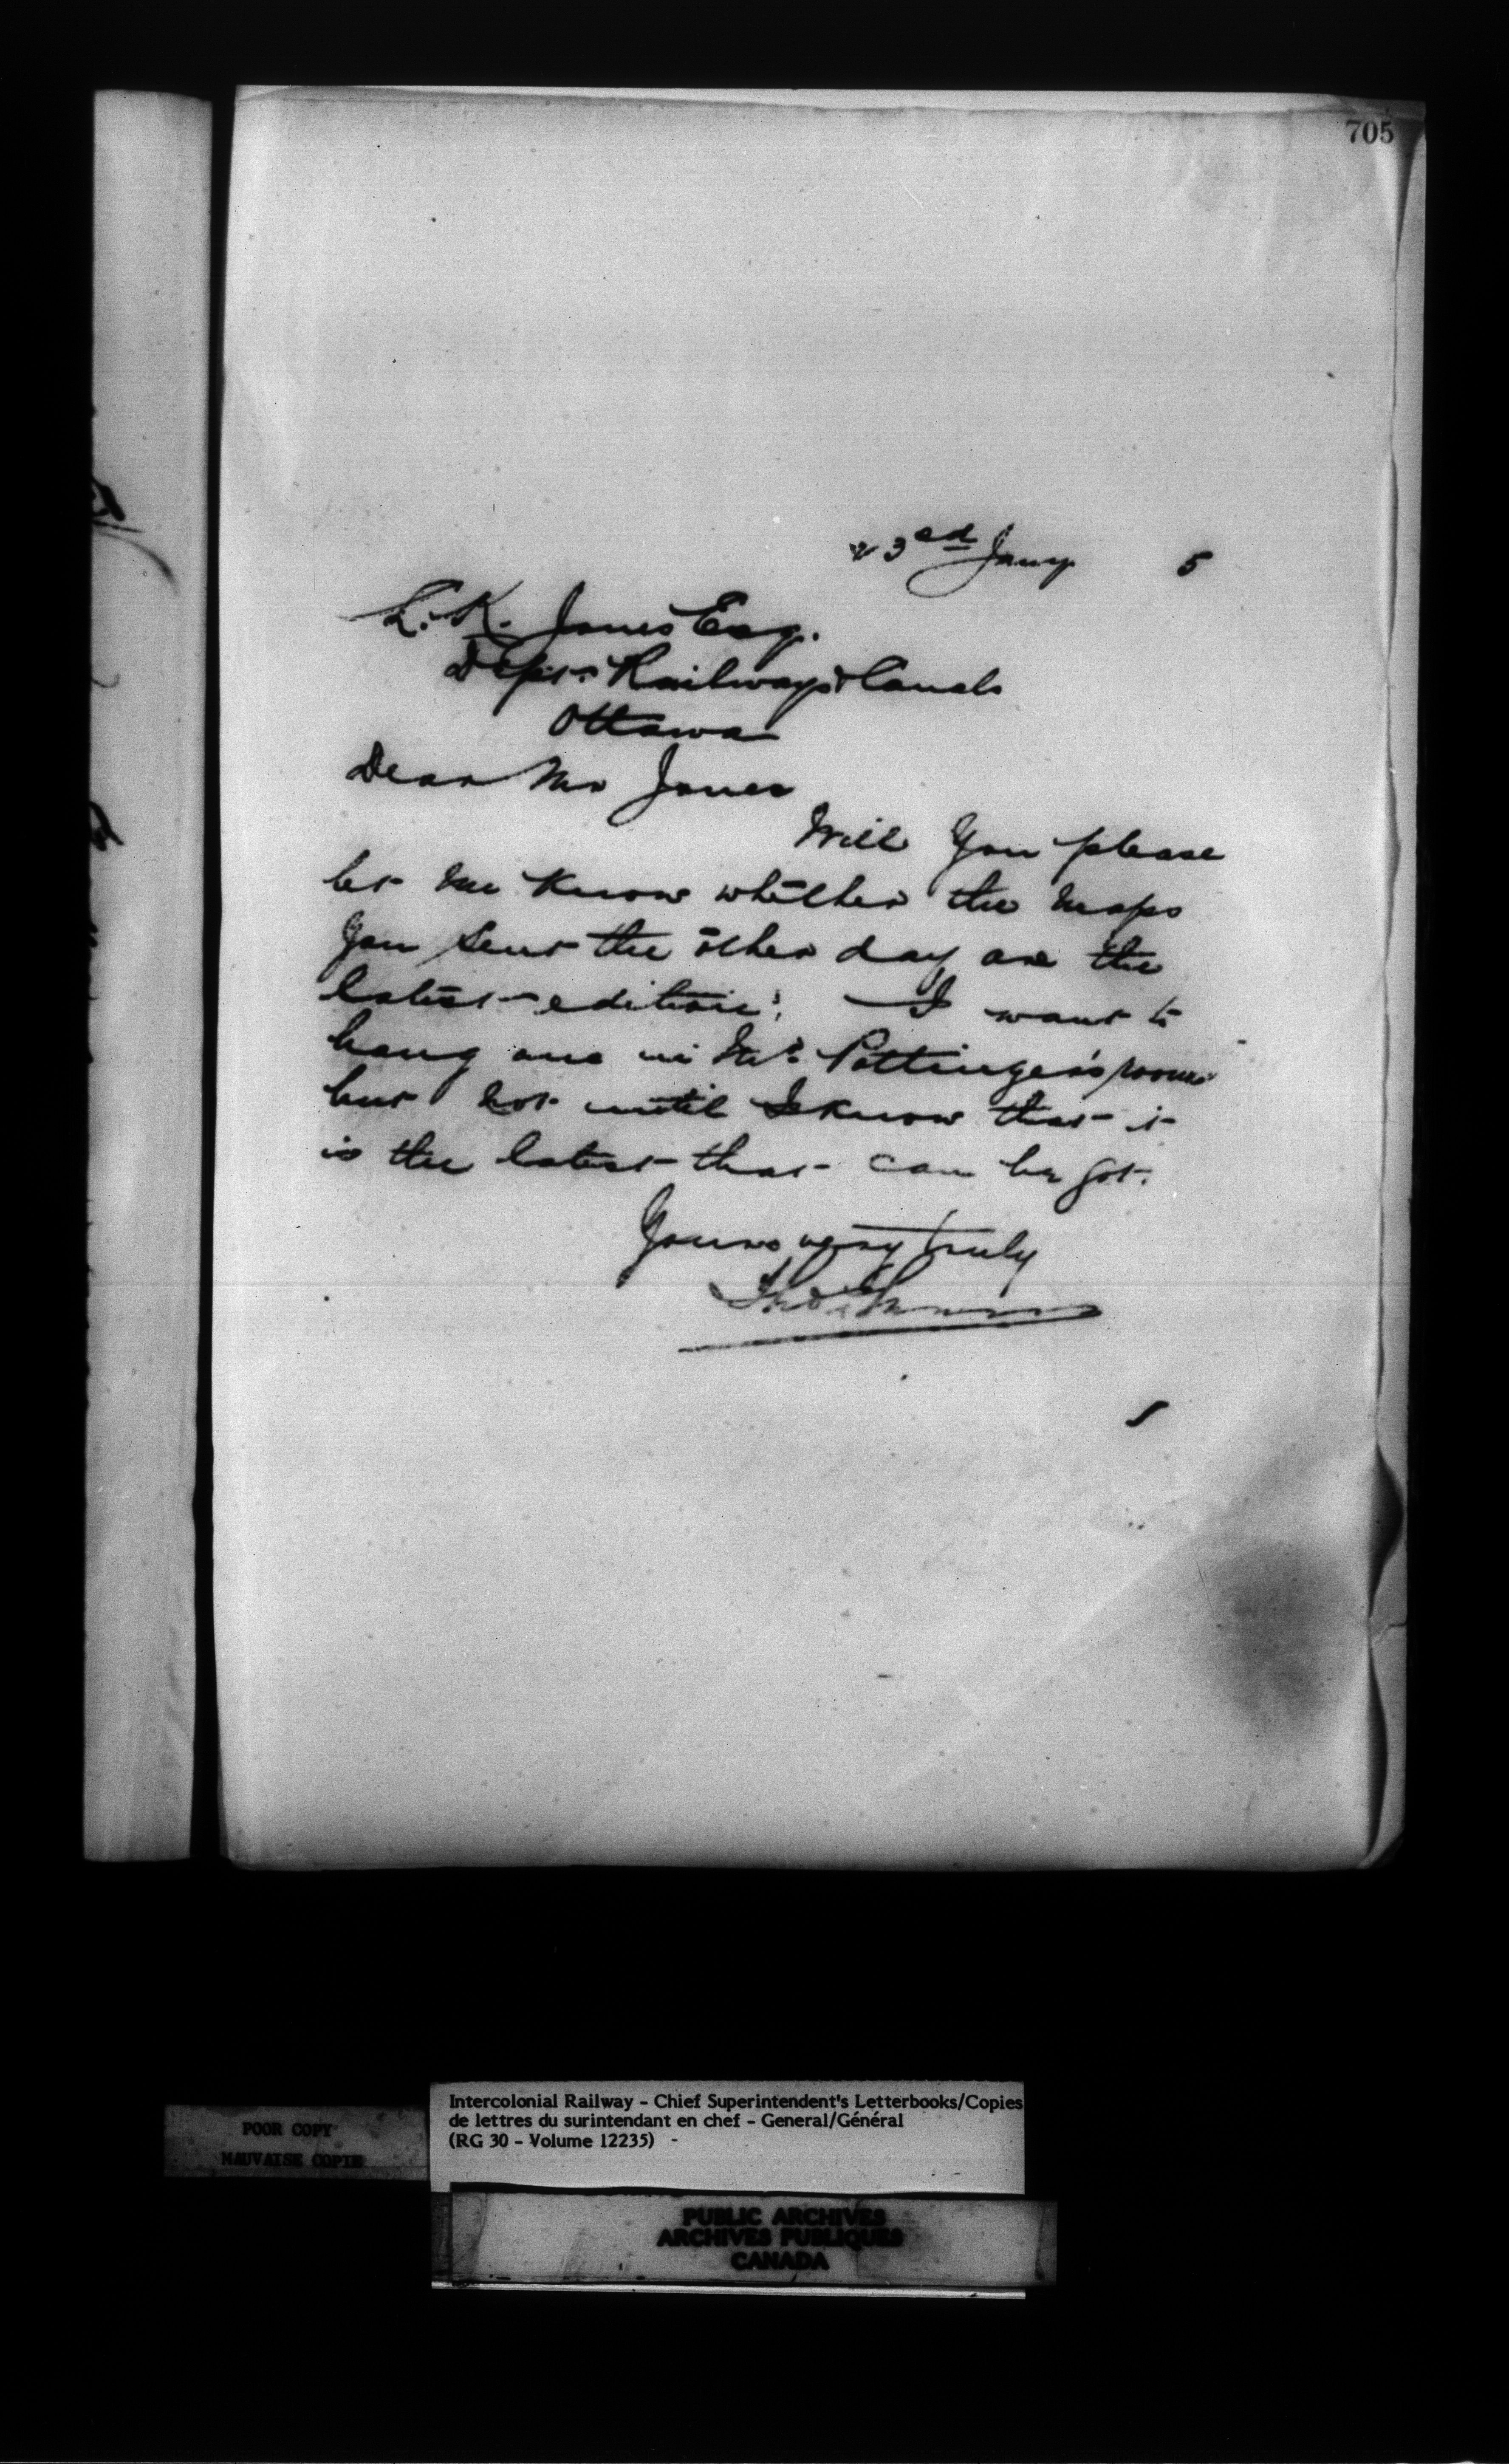 705
23rd Jany 5
L. K. Jones Esq.
Dept. Railways & Canals
Ottawa
Dear Mr Jones
Will you please
let me know whether the maps
you sent the other day are the
latest edition; I want to
hang one in Mr. Pottinger's room
but not until I know that it
is the latest that can be got.
Yours very truly
POOR COPY
MAUVAISE COPIE
Intercolonial Railway - Chief Superintendent's Letterbooks/Copies
de lettres du surintendant en chef - General/Général
(RG 30 - Volume 12235) -
PUBLIC ARCHIVES
ARCHIVES PUBLIQUES
CANADA